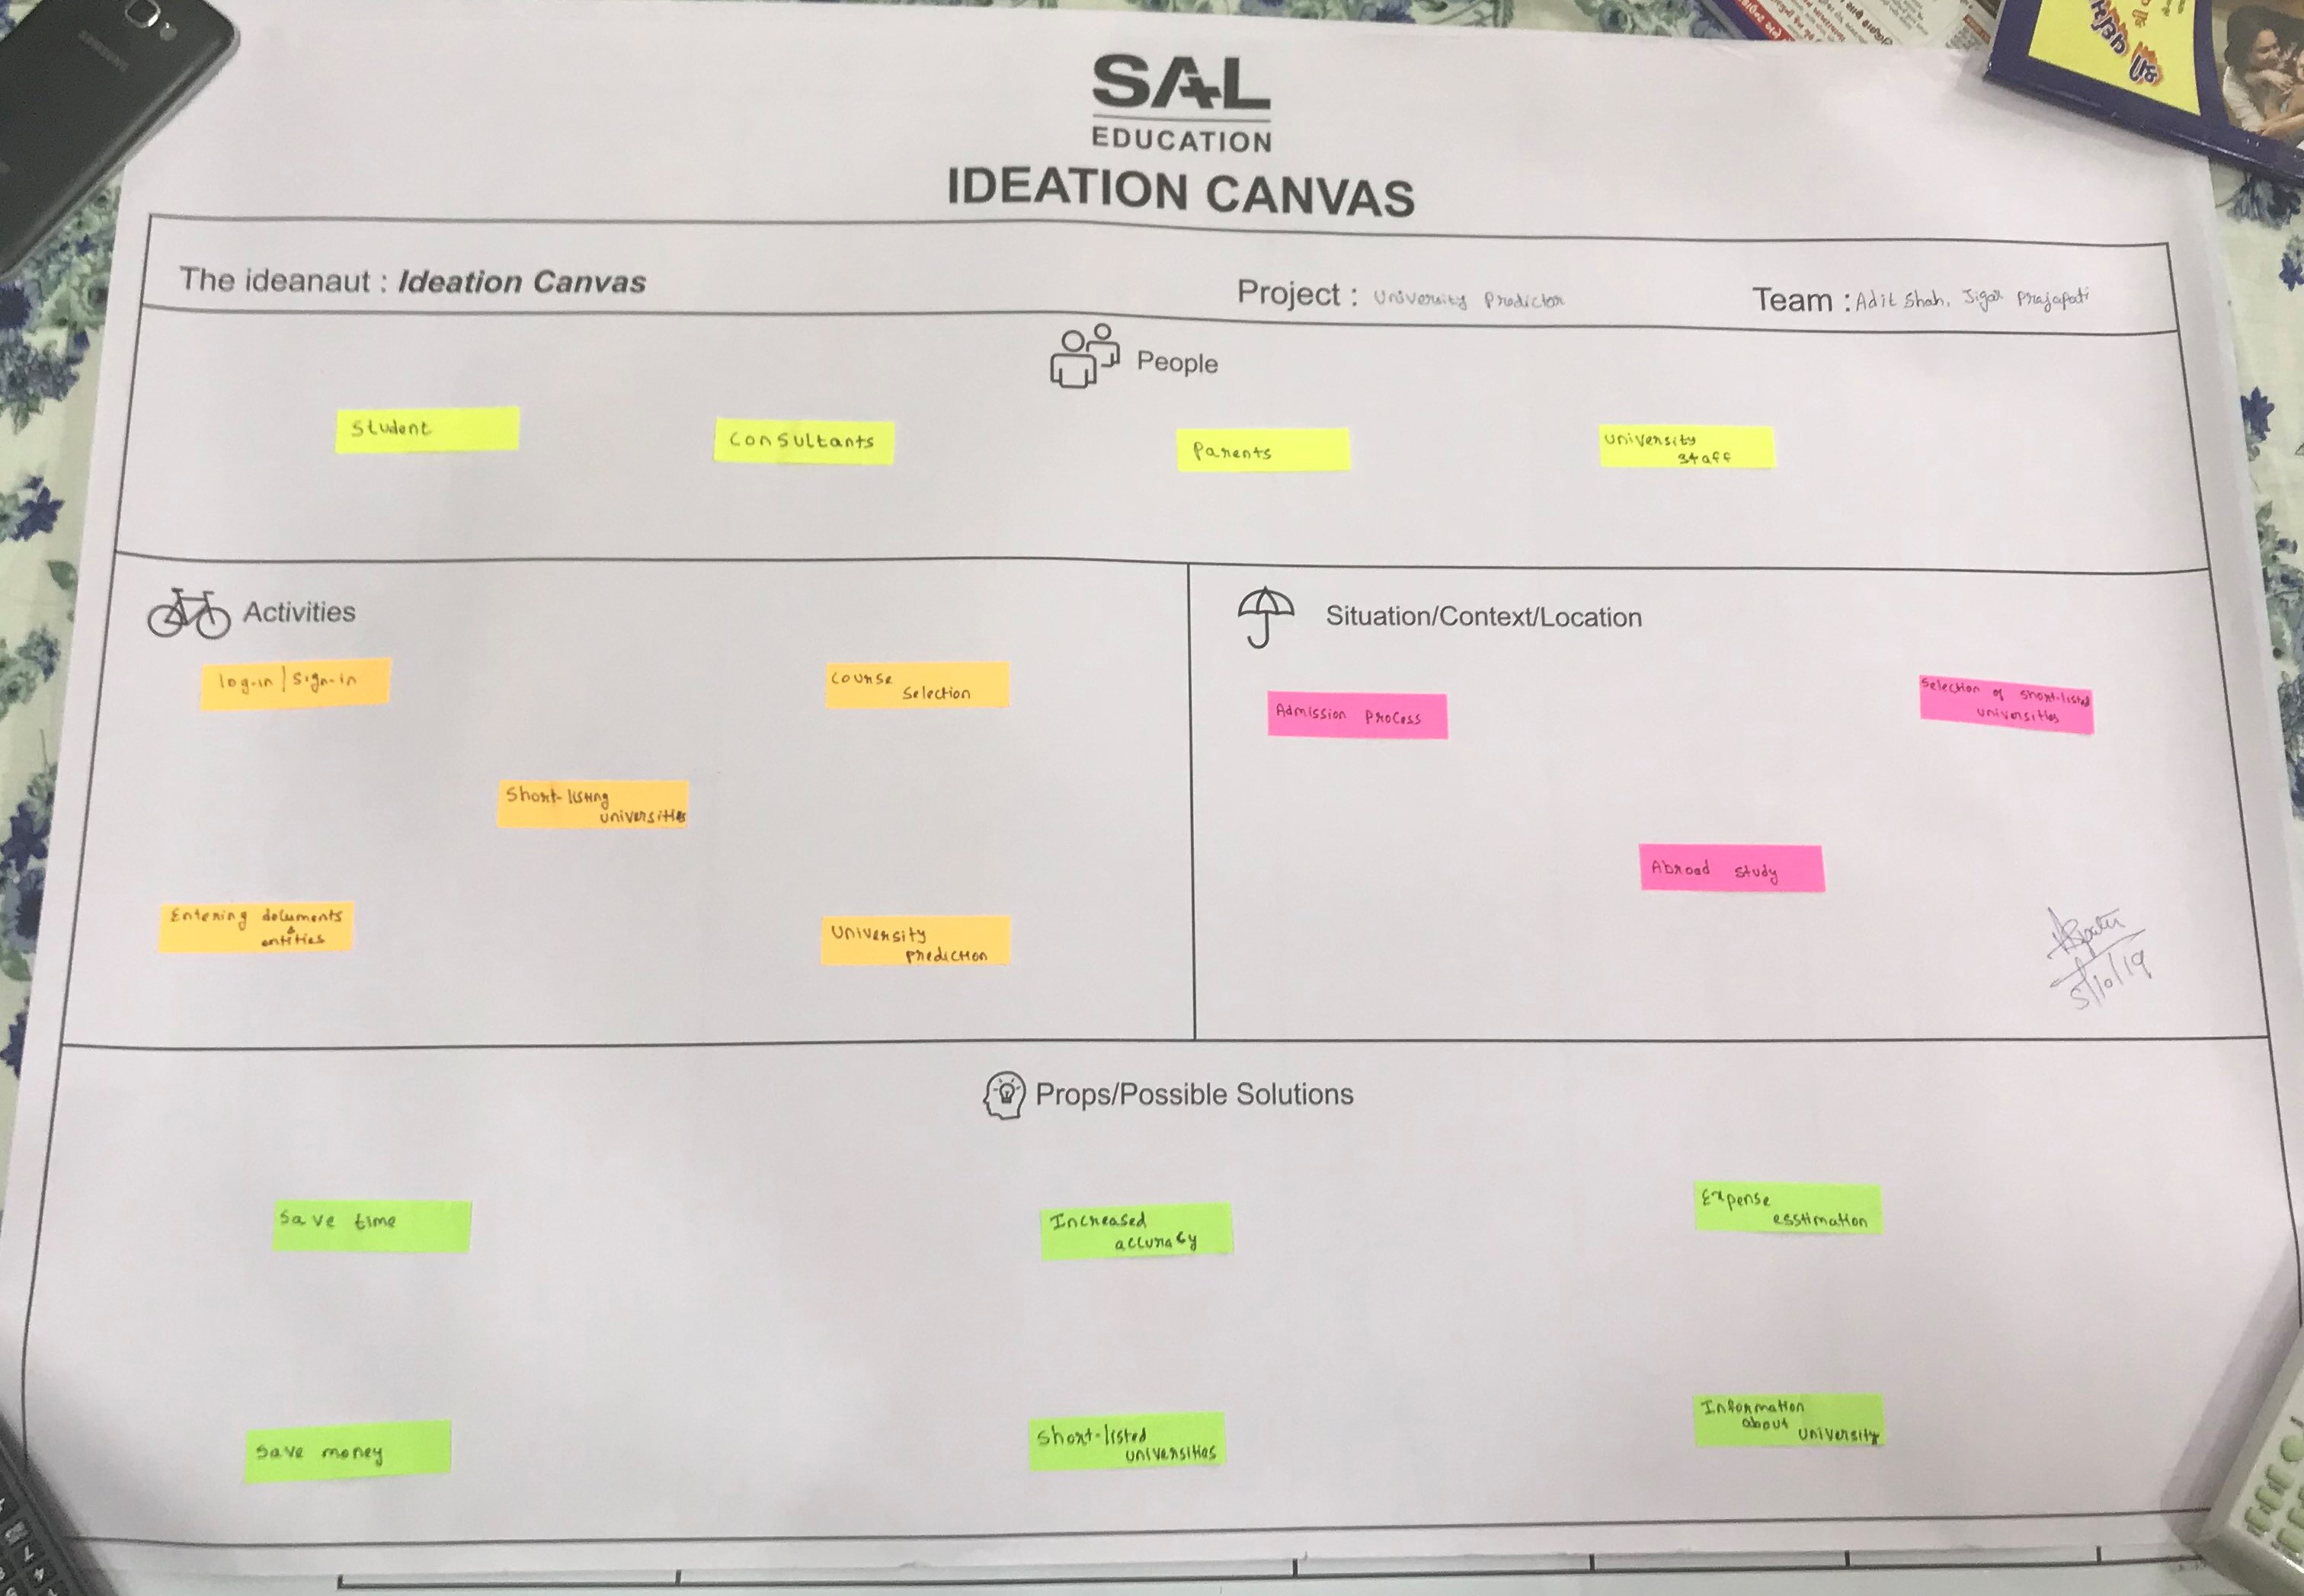 SAMSUNG
SAL
EDUCATION
IDEATION CANVAS
The ideanaut : Ideation Canvas
Project : University Predictor
Team : Adit Shah, Jigar Prajapati
People
Student
Consultants
Parents
University
staff
Activities
log-in | Sign-in
Course
Selection
Short-listing
universities
Entering documents
&
entities
University
prediction
Situation/Context/Location
Admission Process
Selection of short-listed
universities
Abroad study
5/10/19
Props/Possible Solutions
Save time
Increased
accuracy
Expense
esstimation
Save money
Short-listed
universities
Information
about
university